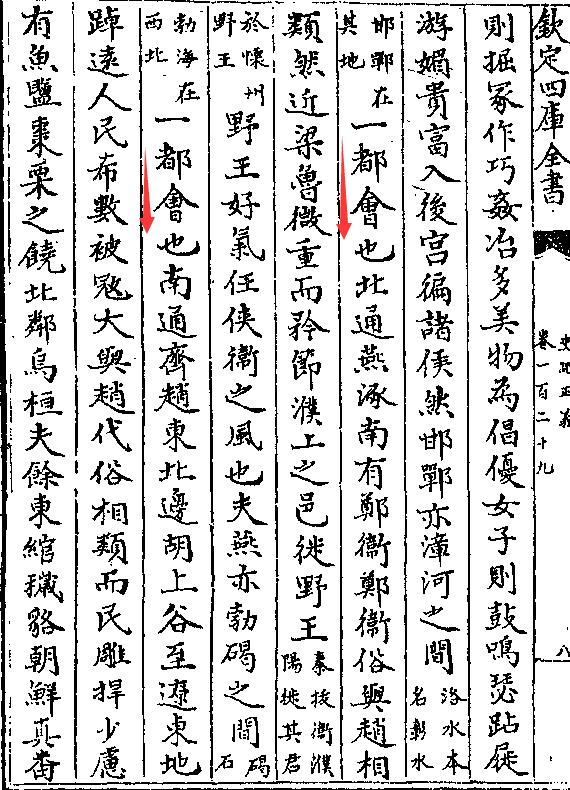 欽定四庫全書
史記正義
卷一百二十九
八
則掘冢作巧姦冶多美物為倡優女子則鼓鳴瑟跕屣
游媚貴富入後宮徧諸侯然邯鄲亦漳河之間洛水本名彰水
邯鄲在其地一都會也北通燕涿南有鄭衛鄭衛俗與趙相
類然近梁魯微重而矜節濮上之邑徙野王秦拔衛濮陽徙其君
於懷州野王野王好氣任俠衛之風也夫燕亦勃碣之間碣石
勃海在西北一都會也南通齊趙東北邊胡上谷至遼東地
踔遠人民布數被冦大與趙代俗相類而民雕捍少慮
有魚鹽棗栗之饒北鄰烏桓夫餘東綰穢貉朝鮮真番